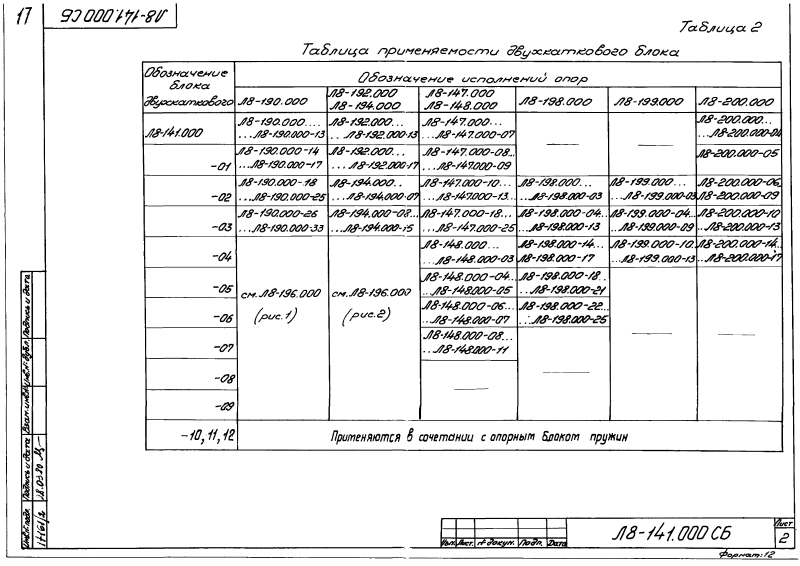 17
Л8-141.000 СБ
Таблица 2
Таблица применяемости двухкаткового блока
Обозначение блока двухкаткового
Обозначение исполнений опор
Л8-190.000
Л8-192.000
Л8-194.000
Л8-147.000
Л8-148.000
Л8-198.000
Л8-199.000
Л8-200.000
Л8-141.000
Л8-190.000...
...Л8-190.000-13
Л8-192.000...
...Л8-192.000-13
Л8-147.000...
...Л8-147.000-07
—
—
Л8-200.000...
...Л8-200.000-04
-01
Л8-190.000-14
...Л8-190.000-17
Л8-192.000...
...Л8-192.000-17
Л8-147.000-08...
...Л8-147.000-09
Л8-200.000-05
-02
Л8-190.000-18
...Л8-190.000-25
Л8-194.000..
...Л8-194.000-07
Л8-147.000-10...
...Л8-147.000-13
Л8-198.000...
...Л8-198.000-03
Л8-199.000...
...Л8-199.000-03
Л8-200.000-06
Л8-200.000-09
-03
Л8-190.000-26
...Л8-190.000-33
Л8-194.000-08...
...Л8-194.000-15
Л8-147.000-18...
...Л8-147.000-25
Л8-198.000-04...
...Л8-198.000-13
Л8-199.000-04...
...Л8-199.000-09
Л8-200.000-10
...Л8-200.000-13
-04
Л8-148.000...
...Л8-148.000-03
Л8-198.000-14...
...Л8-198.000-17
Л8-199.000-10...
...Л8-199.000-13
Л8-200.000-14...
...Л8-200.000-17
-05
см. Л8-196.000
(рис.1)
см. Л8-196.000
(рис.2)
Л8-148.000-04...
...Л8-148.000-05
Л8-198.000-18...
...Л8-198.000-21
-06
Л8-148.000-06...
...Л8-148.000-07
Л8-198.000-22...
...Л8-198.000-25
-07
Л8-148.000-08...
...Л8-148.000-11
—
—
-08
—
—
-09
-10, 11, 12
Применяются в сочетании с опорным блоком пружин
Подпись и дата
Инв.№ дубл.
Взам. инв.№
Подпись и дата
18.03.80
Инв.№ подл.
Изм.
Лист.
№ докум.
Подп.
Дата
Л8-141.000 СБ
Лист
2
Формат: 12